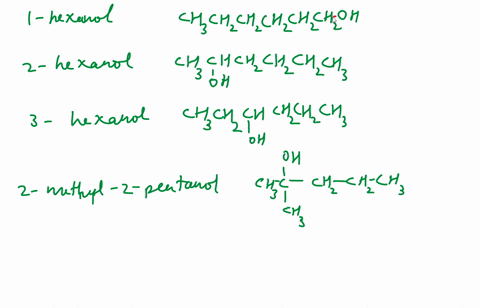 1-hexanol CH3CH2CH2CH2CH2CH2OH
2-hexanol CH3 CH CH2CH2CH2CH3
OH
3- hexanol CH3CH2 CH CH2CH2CH3
OH
OH
2-methyl-2-pentanol CH3-C-CH2-CH2-CH3
CH3